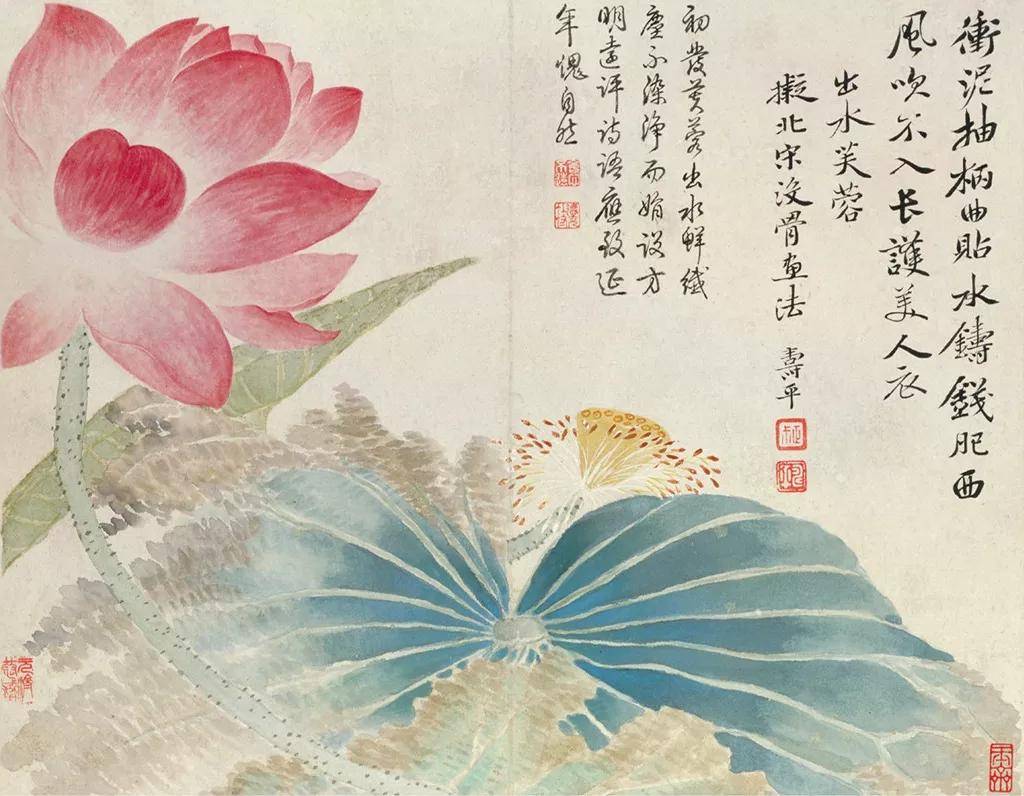 衝泥抽柄曲貼水鑄錢肥西
風吹不入長護美人衣
出水芙蓉
擬北宋没骨畫法 壽平
初發芙蓉出水鮮纖
塵不染淨而娟設方
明遠評詩語應致延
年愧自然